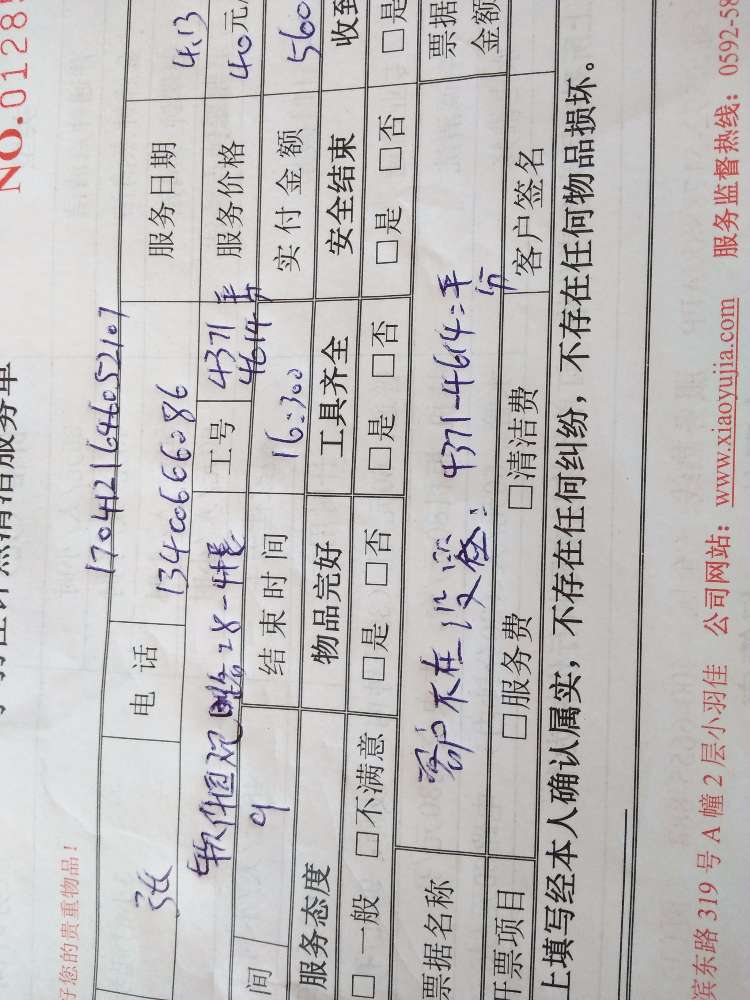 NO.0128
好您的贵重物品！
1704121646052107
张 电话 13400666086 服务日期 4.13
软件园观日路28-4楼 工号 4371 4614 平分 服务价格 40元/
间 9 结束时间 16:300 实付金额 560
服务态度 物品完好 工具齐全 安全结束 收到
□一般 □不满意 □是 □否 □是 □否 □是 □否 □是
票据名称 客户不在 没签. 4371-4614=平分 票据金额
开票项目 □服务费 □清洁费 客户签名
上填写经本人确认属实，不存在任何纠纷，不存在任何物品损坏。
滨东路 319 号 A 幢 2 层小羽佳 公司网站：www.xiaoyujia.com 服务监督热线：0592-58